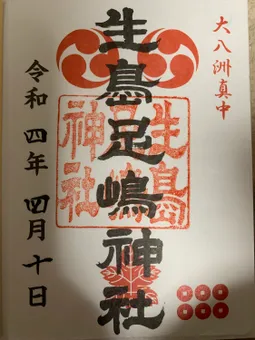 大八洲真中
生島足嶋神社
生島
足嶋
神社
令和四年 四月十日